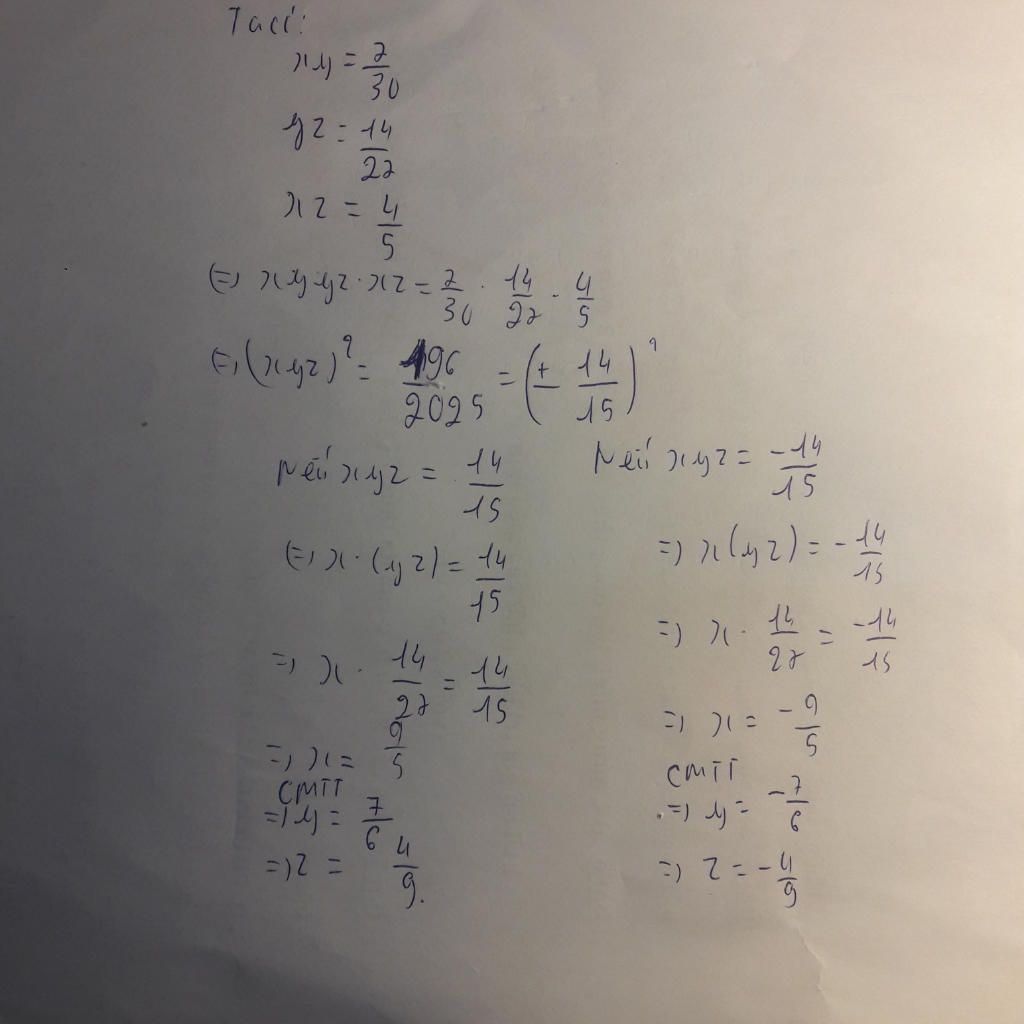 Ta có:
xy = 7/30
yz = 14/27
xz = 4/5
=> xy.yz.xz = 7/30 . 14/27 . 4/5
=> (xyz)² = 196/2025 = (± 14/15)²
Nếu xyz = 14/15
=> x.(yz) = 14/15
=> x . 14/27 = 14/15
=> x = 9/5
CMTT
=> y = 7/6
=> z = 4/9.
Nếu xyz = -14/15
=> x(yz) = -14/15
=> x . 14/27 = -14/15
=> x = -9/5
CMTT
=> y = -7/6
=> z = -4/9